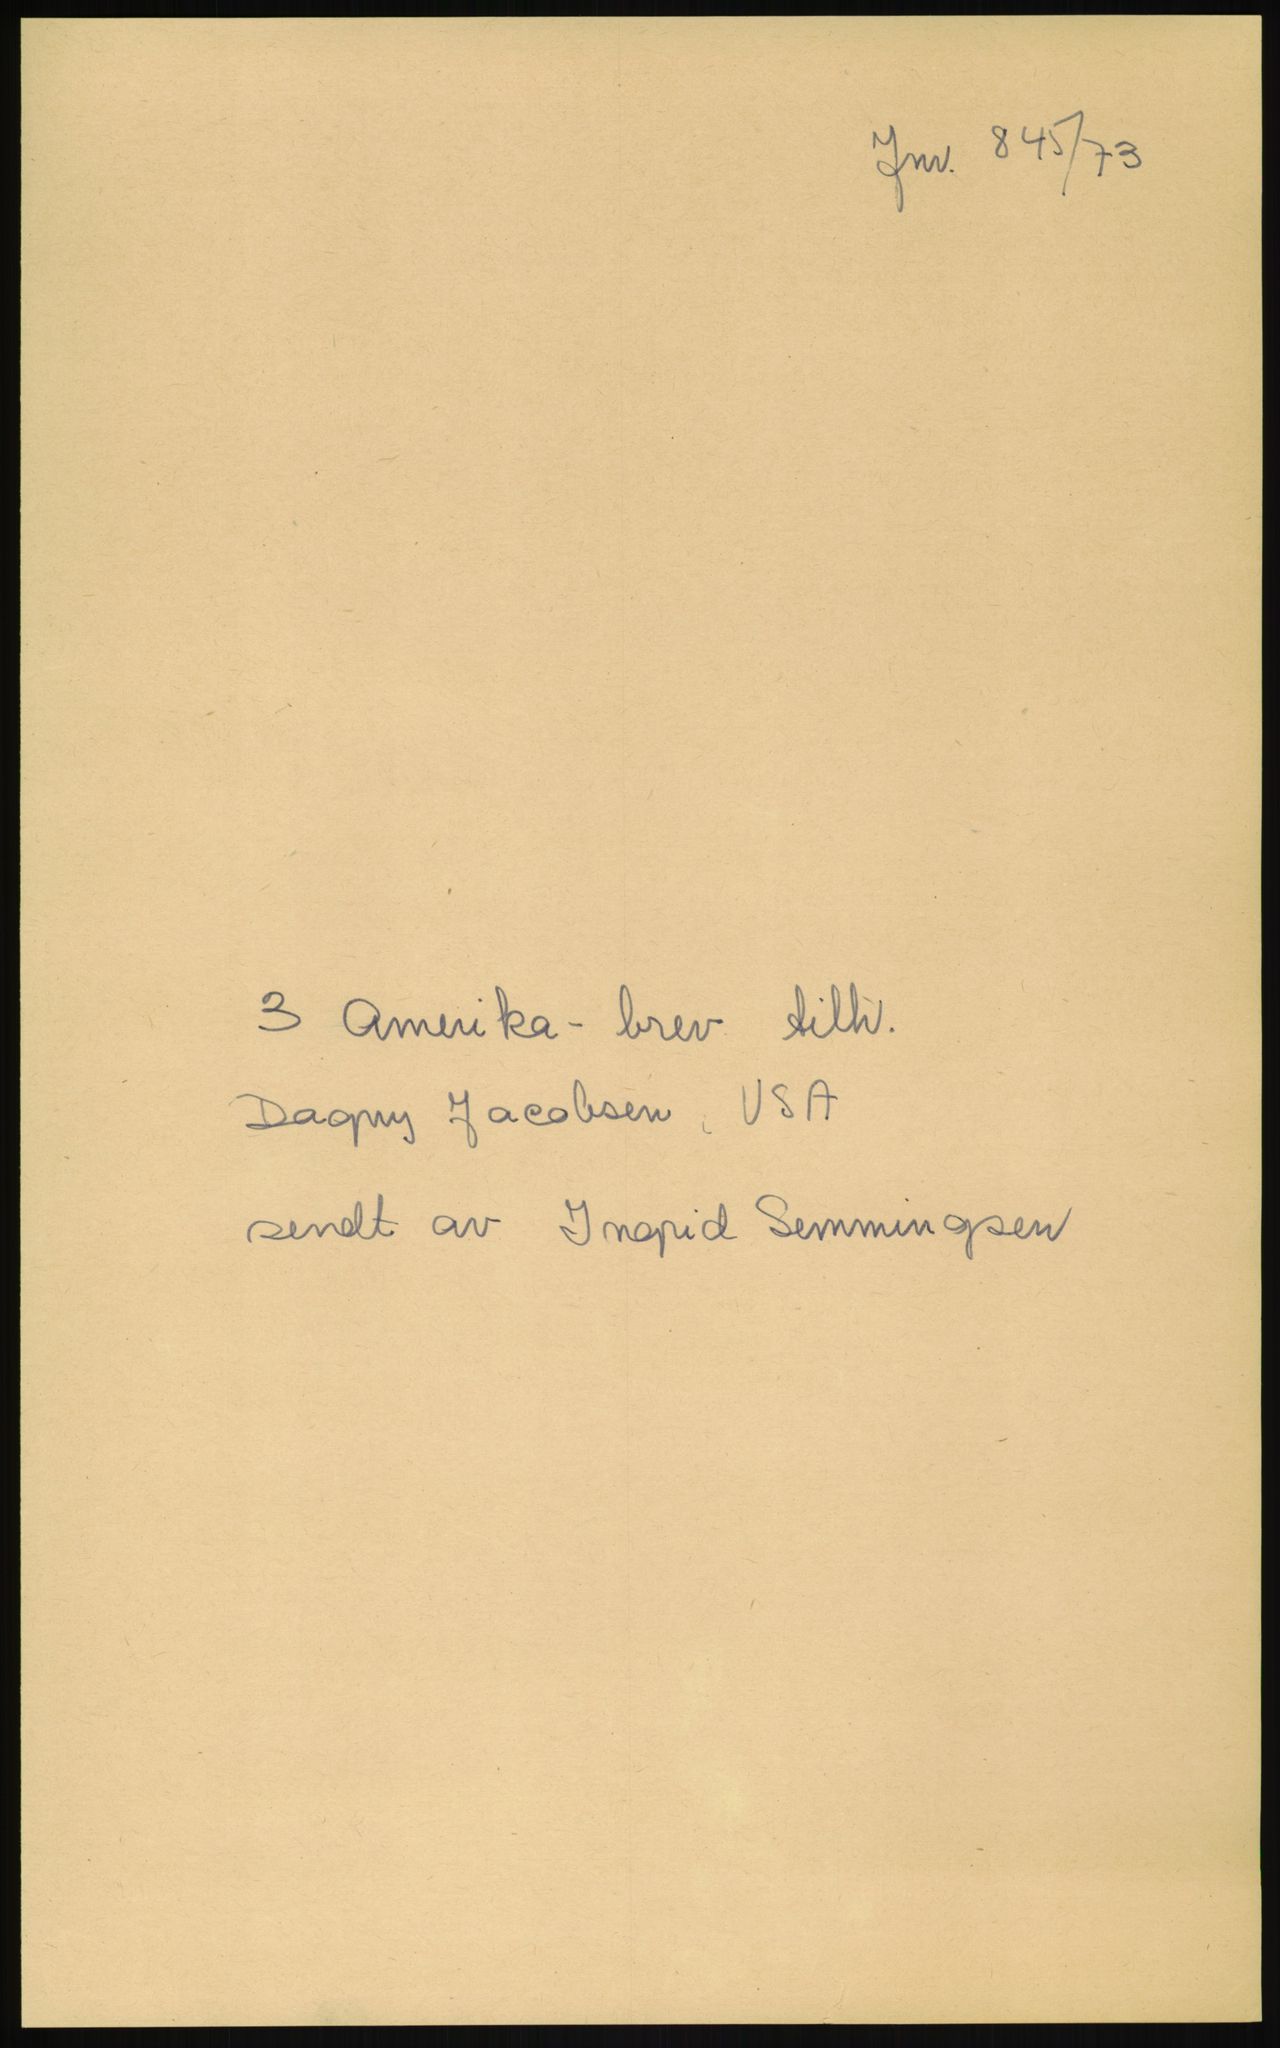 Jnr. 845/73
3 Amerika-brev tilh.
Dagny Jacobsen, USA
sendt av Ingrid Semmingsen